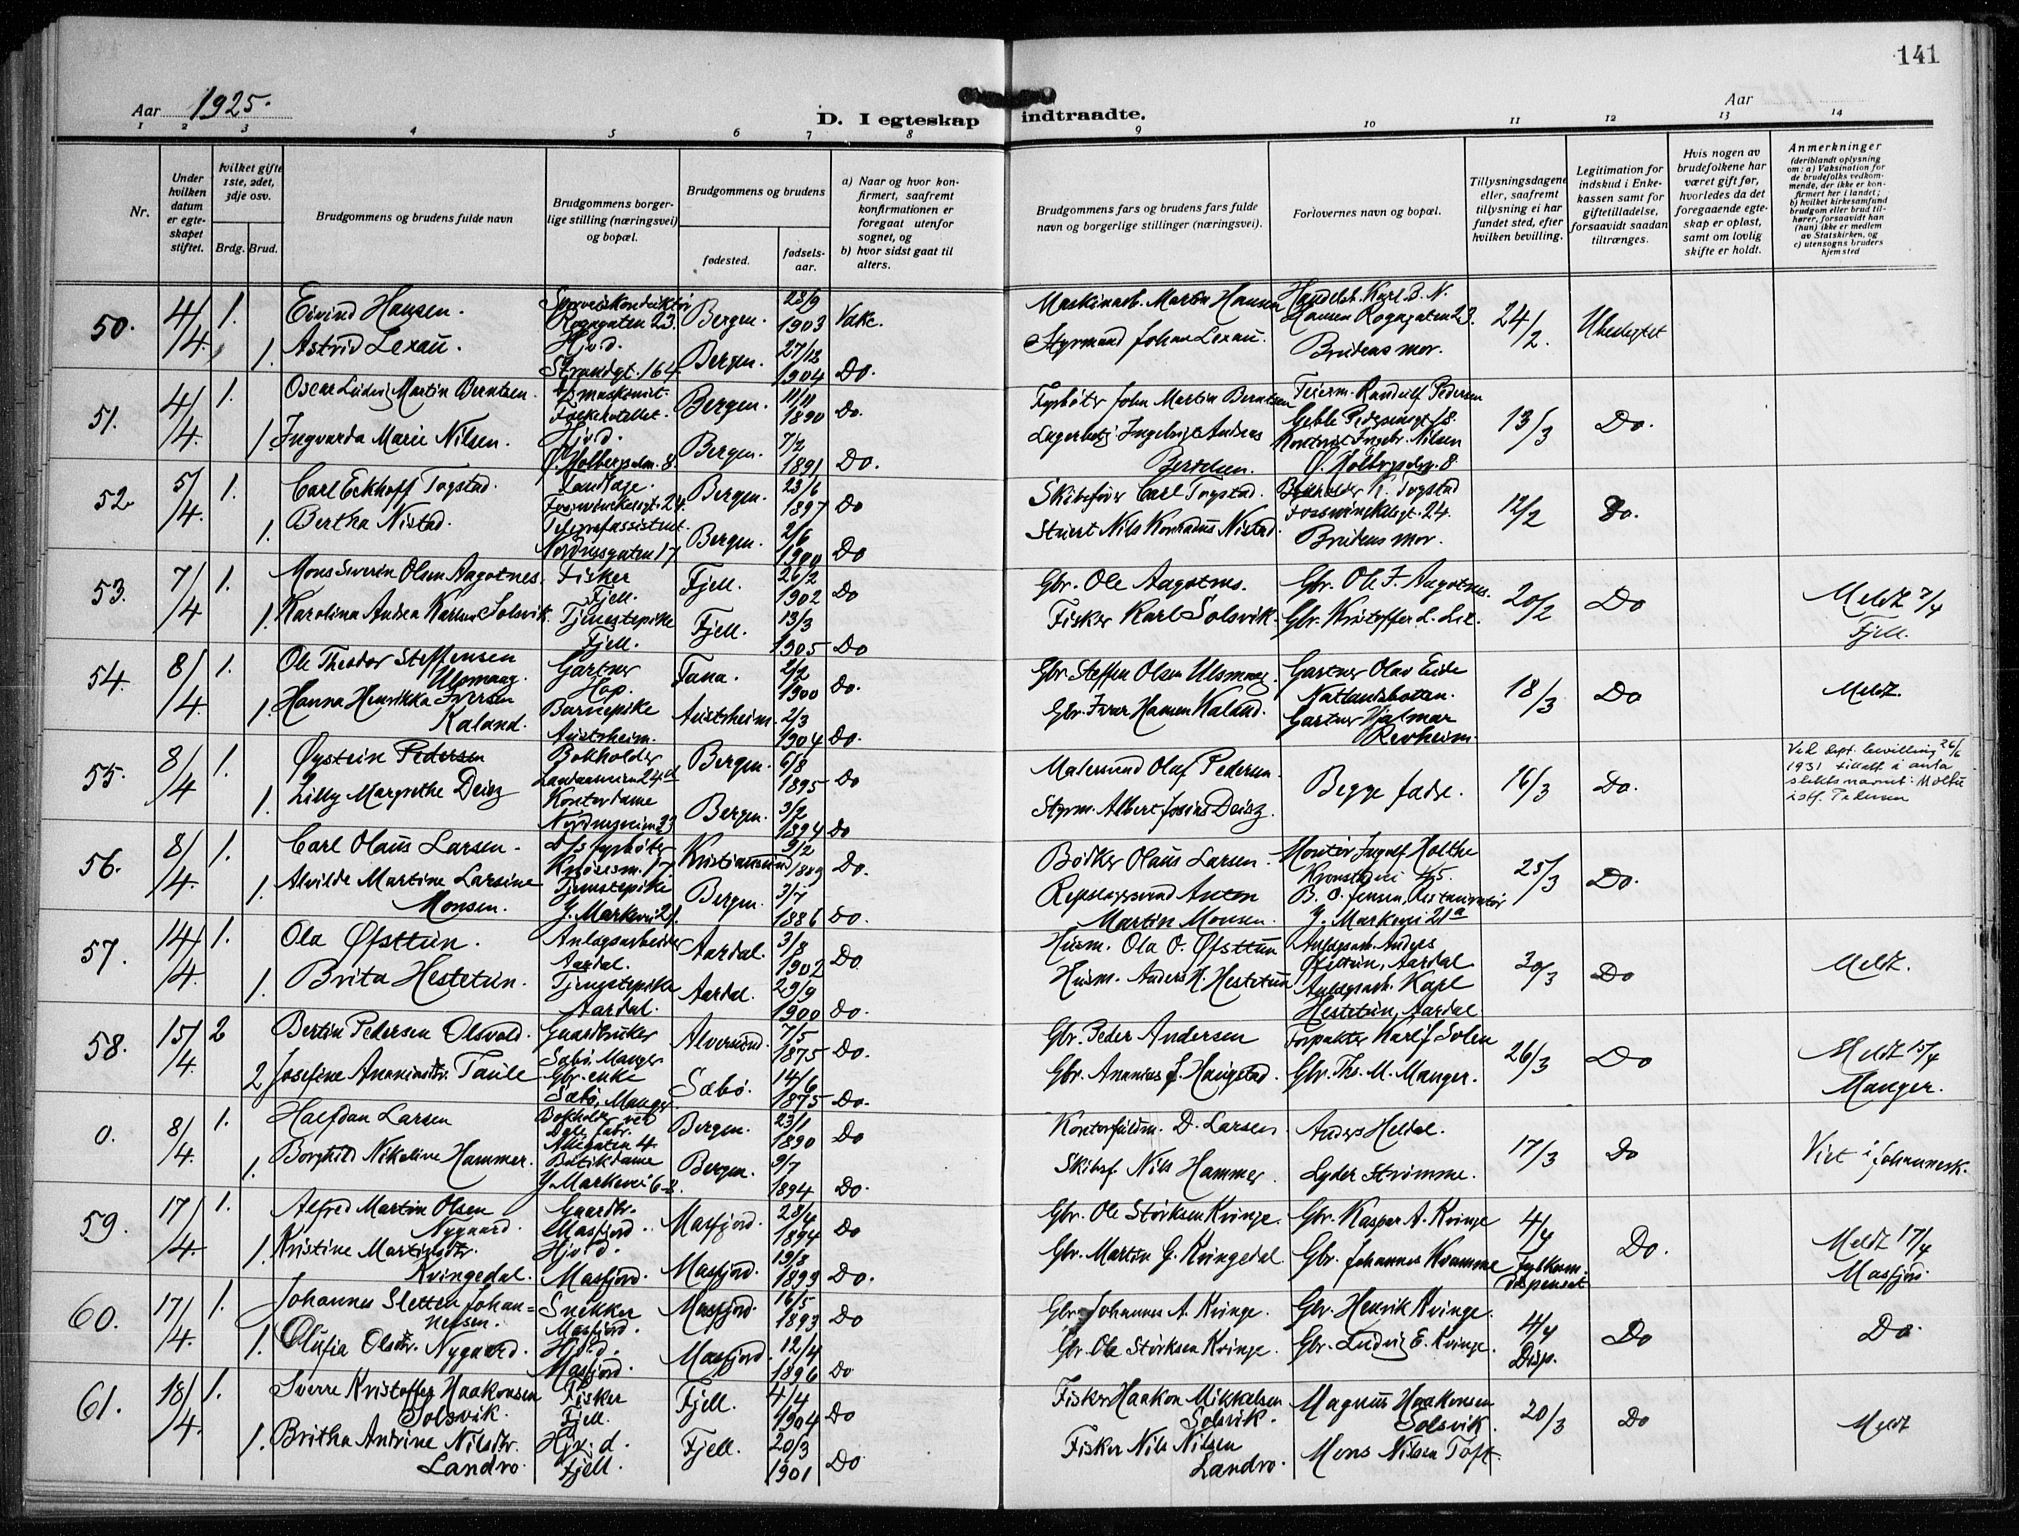 141
Aar 1925.
D. I egteskap indtraadte.
Aar
1 2 3 4 5 6 7 8 9 10 11 12 13 14
Nr.
Under hvilken datum er egteskapet stiftet.
hvilket gifte 1ste, 2det, 3dje osv.
Brdg. Brud.
Brudgommens og brudens fulde navn
Brudgommens borgerlige stilling (næringsvei) og bopæl.
Brudgommens og brudens
fødested.
fødselsaar.
a) Naar og hvor konfirmert, saafremt konfirmationen er foregaat utenfor sognet, og
b) hvor sidst gaat til alters.
Brudgommens fars og brudens fars fulde navn og borgerlige stillinger (næringsvei).
Forlovernes navn og bopæl.
Tillysningsdagene eller, saafremt tillysning ei har fundet sted, efter hvilken bevilling.
Legitimation for indskud i Enkekassen samt for giftetilladelse, forsaavidt saadan tiltrænges.
Hvis nogen av brudefolkene har været gift før, hvorledes da det foregaaende egteskap er opløst, samt om lovlig skifte er holdt.
Anmerkninger
(deriblandt oplysning om: a) Vaksination for de brudefolks vedkommende, der ikke er konfirmert her i landet; b) hvilket kirkesamfund brudgom eller brud tilhører, forsaavidt han (hun) ikke er medlem av Statskirken, og c) utensogns bruders hjemsted
50. 4/4. 1. Eivind Hansen. Rogagaten 23. Bergen. 28/9 1903 Vake. Maskinarb. Martin Hansen Handelsb. Karl B. N. Hansen Rogagaten 23. 24/2. Ubesigtet
1. Astrid Lexau. Hjv. d. Strandgt. 164 Bergen. 27/12 1904 Do. Styrmand Johan Lexau. Brudens mor.
51. 4/4. 1. Oscar Ludvig Martin Berntsen. Bergen. 11/11 1890 Do. Fyrbøter John Martin Berntsen Feierm. Randulf Pedersen 13/3 Do.
1. Ingvarda Marie Nilsen. Hjv. d. Ø. Holbergsalm. 8. Bergen. 7/2 1891 Do. Ingebrigt Andreas Bertelsen. Ingebr. Nilsen Ø. Holbergsalm. 8
52. 5/4. 1. Carl Eckhoff Togstad. Tandlæge. Fosswinckelsgt. 24. Bergen. 23/6 1897 Do Skibsfører Carl Togstad. K. Togstad Fosswinckelsgt. 24. 12/2 Do.
1. Bertha Nistad. Telegrafassistent. Nordnesgaten 17 Bergen. 2/6 1900 Do Stuert Nils Konradus Nistad. Brudens mor.
53. 7/4 1. Mons Severin Olsen Aagotnes. Fisker Fjell. Fjell. 26/2 1902 Do Gbr. Ole Aagotnes. Gbr. Ole J. Aagotnes. 20/2 Do Meldt 7/4 Fjell.
1. Karolina Andrea Karlsd. Solsvik. Tjenestepike Fjell. Fjell. 13/3 1905 Do Fisker Karl Solsvik. Gbr. Kristoffer L. Lie.
54. 8/4. 1. Ole Theodor Steffensen Ulsmaag. Gartner Hop. Fana. 2/2 1900 Do. Gbr. Steffen Olsen Ulsmaag. Gartner Olav Eide Natlandsbotten. 18/3 Do Meldt.
1. Hanna Henrikka Iversen Kaland. Barnepike Austrheim. Austrheim. 2/3 1904 Do. Gbr. Ivar Hansen Kaland. Gartner Hjalmar Revheim.
55. 8/4 1. Øystein Pedersen Bokholder Landaasveien 24d Bergen. 6/8 1895 Do Malersvend Olaf Pedersen. Begge fædre. 16/3 Do. Ved dept. bevilling 26/6 1931 tillatt å anta slektsnavnet: Moltu istf. Pedersen
1. Lilly Margrethe Deisz Kontordame Nordnesveien 33 Bergen. 3/2 1894 Do Styrm. Albert Josias Deisz.
56. 8/4. 1. Carl Olaus Larsen. D/s fyrbøter Kristiansund 1889 Do. Bødker Olaus Larsen. Montør Ingolf Holthe 25/3 Do.
1. Alvilde Martine Larsine Monsen. Tjenestepike Y. Markevei 21. Bergen. 3/7 1886 Do. Repslagersvend Anton Martin Monsen. B. O. Jensen, Restauratør Y. Markevei 21a
57. 14/4. 1. Ola Øfsttun. Anlægsarbeider Aardal. Aardal. 3/8 1902 Do Husm. Ola O. Øfsttun Anlægsarb. Anders Øfsttun, Aardal 30/3 Do Meldt.
1. Brita Hestetun. Tjenestepike Aardal. Aardal. 29/9 1900 Do. Husm. Anders K. Hestetun Anlægsarb. Karl Hestetun, Aardal
58. 15/4. 2 Bertin Pedersen Olsvold. Gaardbruker Sæbø, Manger Alversund. 7/5 1875 Do. Gbr. Peder Andersen Forpakter Karl J. Solen 26/3 Do Meldt 15/4 Manger.
2 Josefine Ananiasdtr. Taule Gbr. enke Sæbø, Manger Sæbø. 14/6 1875 Do. Gbr. Ananias J. Haugstad. Gbr. Ths. M. Manger.
0. 8/4. 1. Halfdan Larsen Bokholder ved Dale fabr. Allégaten 4. Bergen. 23/1 1890 Do Kontorfuldm. D. Larsen Anders Heldal. 17/3 Do Viet i Johannesk.
1. Borghild Nikeline Hammer. Butikdame Y. Markevei 6-8. Bergen. 9/7 1894 Do. Skibsf. Nils Hammer. Lyder Strømme.
59. 17/4 1. Alfred Martin Olsen Nygaard. Gaardbr. Masfjord. Masfjord. 28/4 1894 Do Gbr. Ole Størksen Kvinge. Gbr. Kasper A. Kvinge 4/4 Fylkesm. dispensat. Do. Meldt 17/4 Masfjord.
1. Kristine Martinsdtr. Kvingedal. Hjv. d. Masfjord. Masfjord. 19/3 1899 Do. Gbr. Martin G. Kvingedal Gbr. Johannes Kvamme
60. 17/4. 1. Johannes Sletten Johannessen. Snekker Masfjord. Masfjord. 16/5 1893 Do Gbr. Johannes A. Kvinge. Gbr. Henrik Kvinge. 4/4 Disp. Do Do.
1. Olufia Olsdtr. Nygaard. Hjv. d. Masfjord. Masfjord 12/4 1896 Do Gbr. Ole Størksen Kvinge. Gbr. Ludvig E. Kvinge.
61. 18/4. 1. Sverre Kristoffer Haakonsen Solsvik. Fisker Fjell. Fjell. 4/4 1904 Do Fisker Haakon Mikkelsen Solsvik. Magnus Haakonsen Solsvik 20/3 Do Meldt
1. Britha Andrine Nilsdtr. Landro Hjv. d. Fjell. Fjell. 20/3 1901 Do Fisker Nils Nilsen Landro. Mons Nilsen Toft.